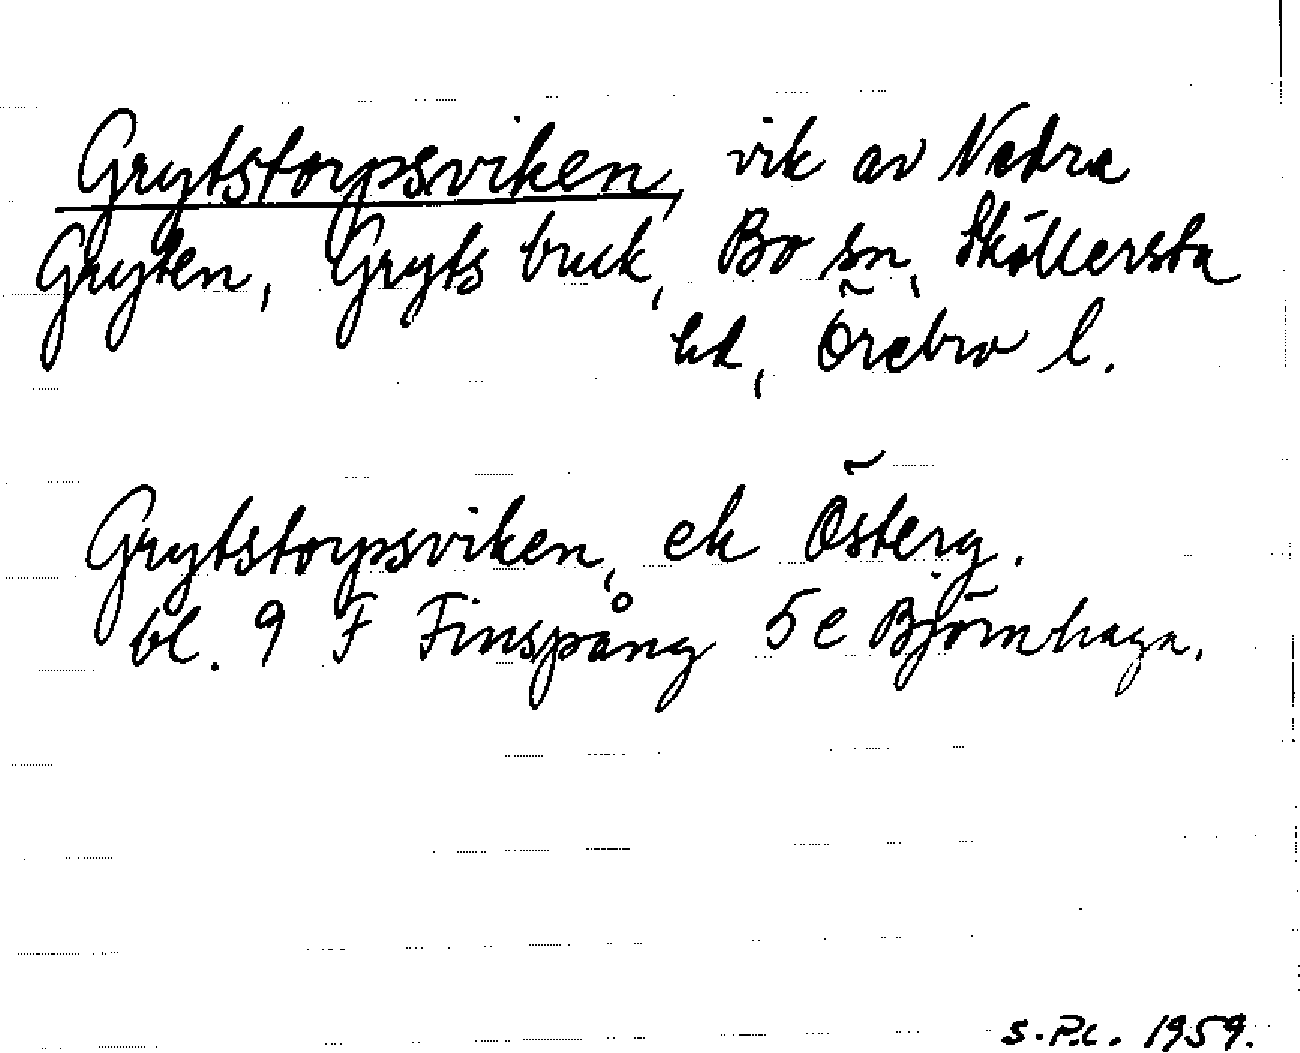 Grytstorpsviken, vik av Nedra
Gryten, Gryts bruk, Bo sn, Sköllersta
hd, Örebro l.
Grytstorpsviken, ek Österg.
bl. 9 F Finspång 5 e Björnhaga.
S.P.C. 1959.